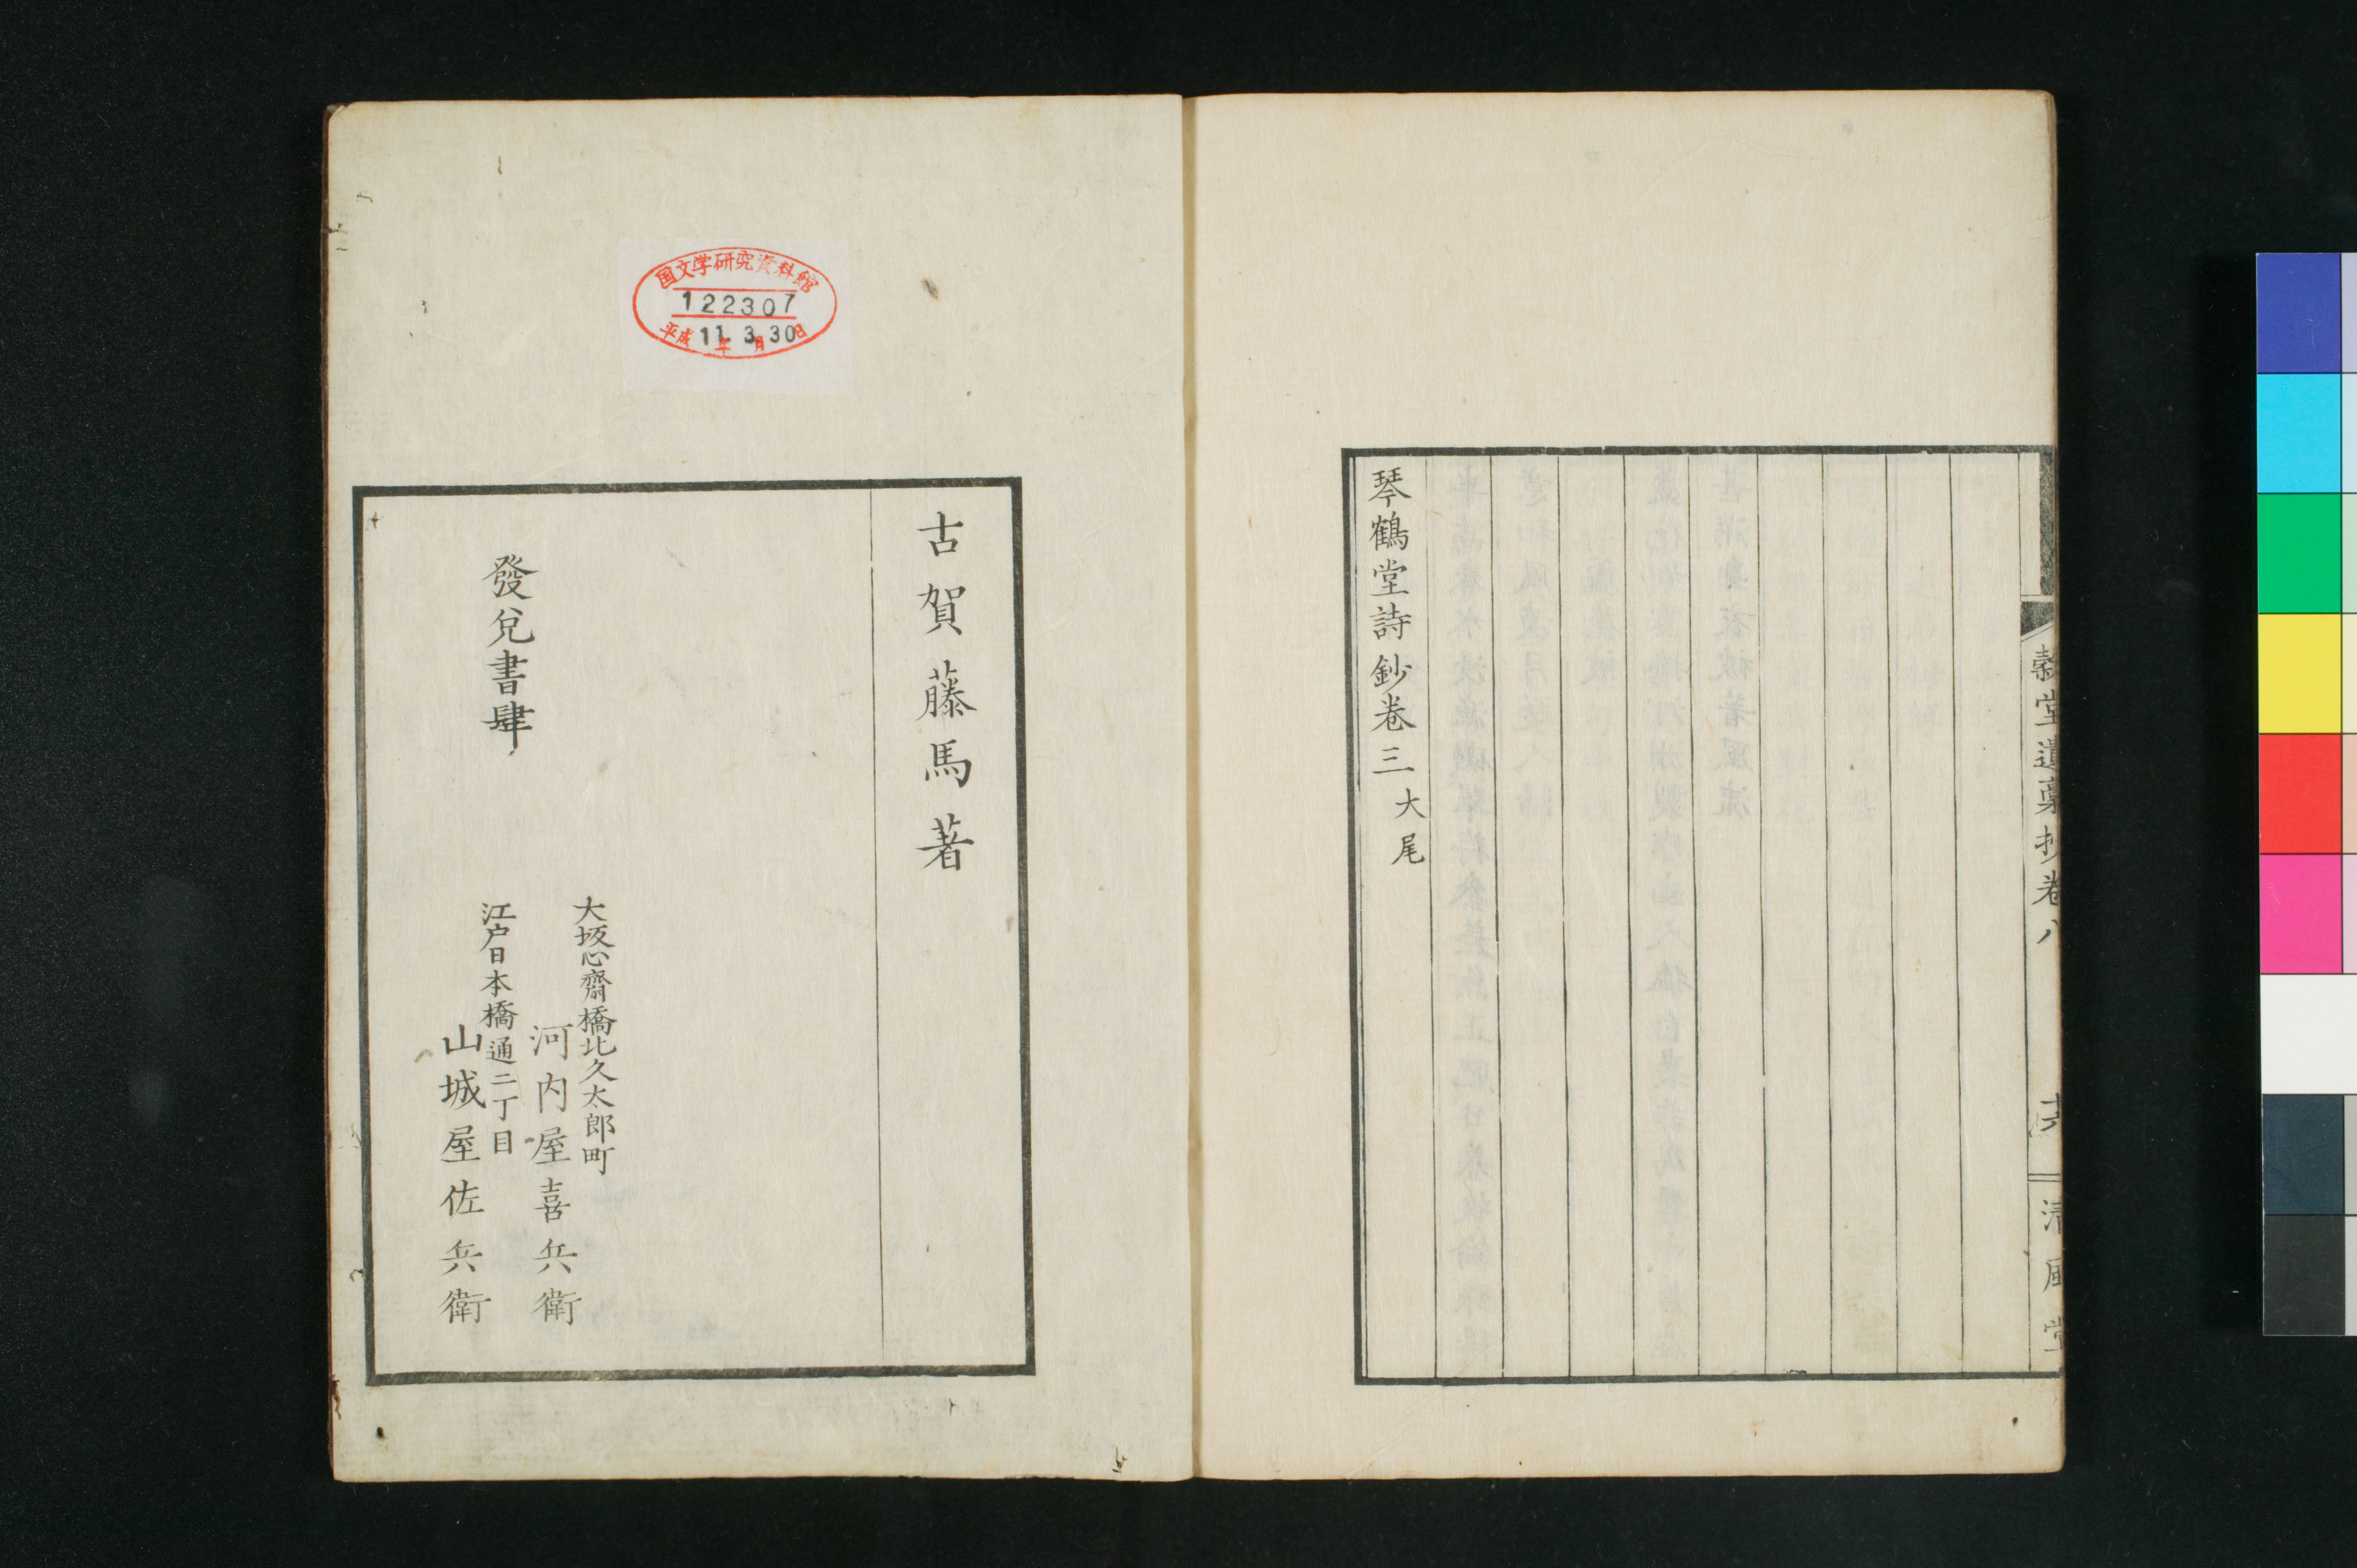 穀堂遺稾抄卷八
清風堂
琴鶴堂詩鈔卷三 大尾
古賀藤馬著
大坂心齋橋北久太郎町
河内屋喜兵衛
江戸日本橋通二丁目
山城屋佐兵衛
發兌書肆
国文学研究資料館
122307
平成11年3月30日